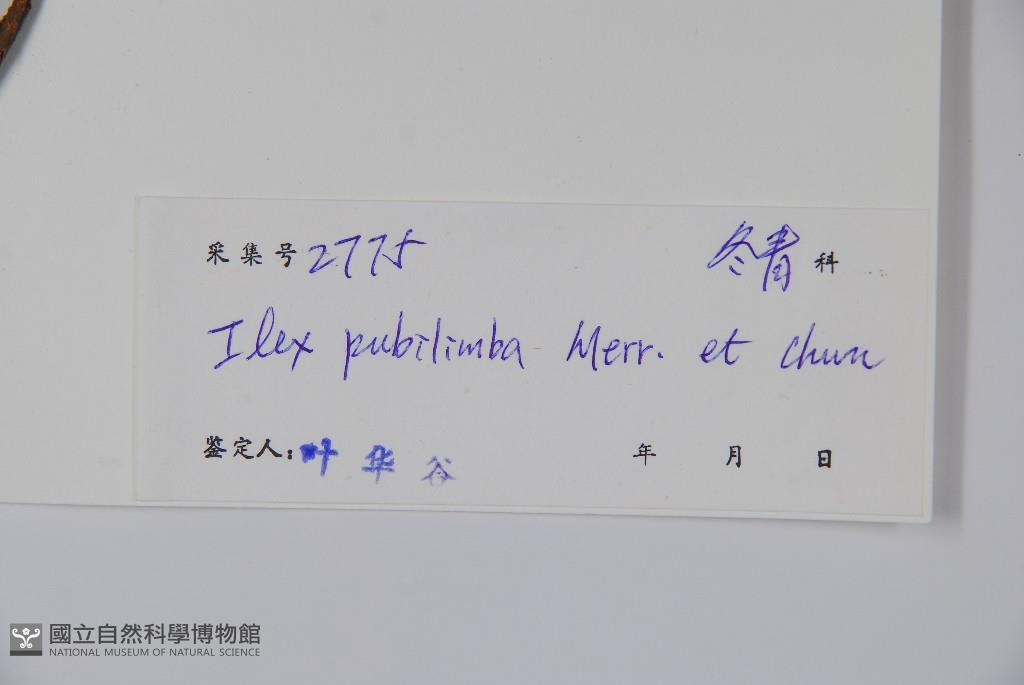 采集号 2775 冬青 科
Ilex pubilimba Merr. et Chun
鉴定人: 叶华谷 年 月 日
國立自然科學博物館
NATIONAL MUSEUM OF NATURAL SCIENCE